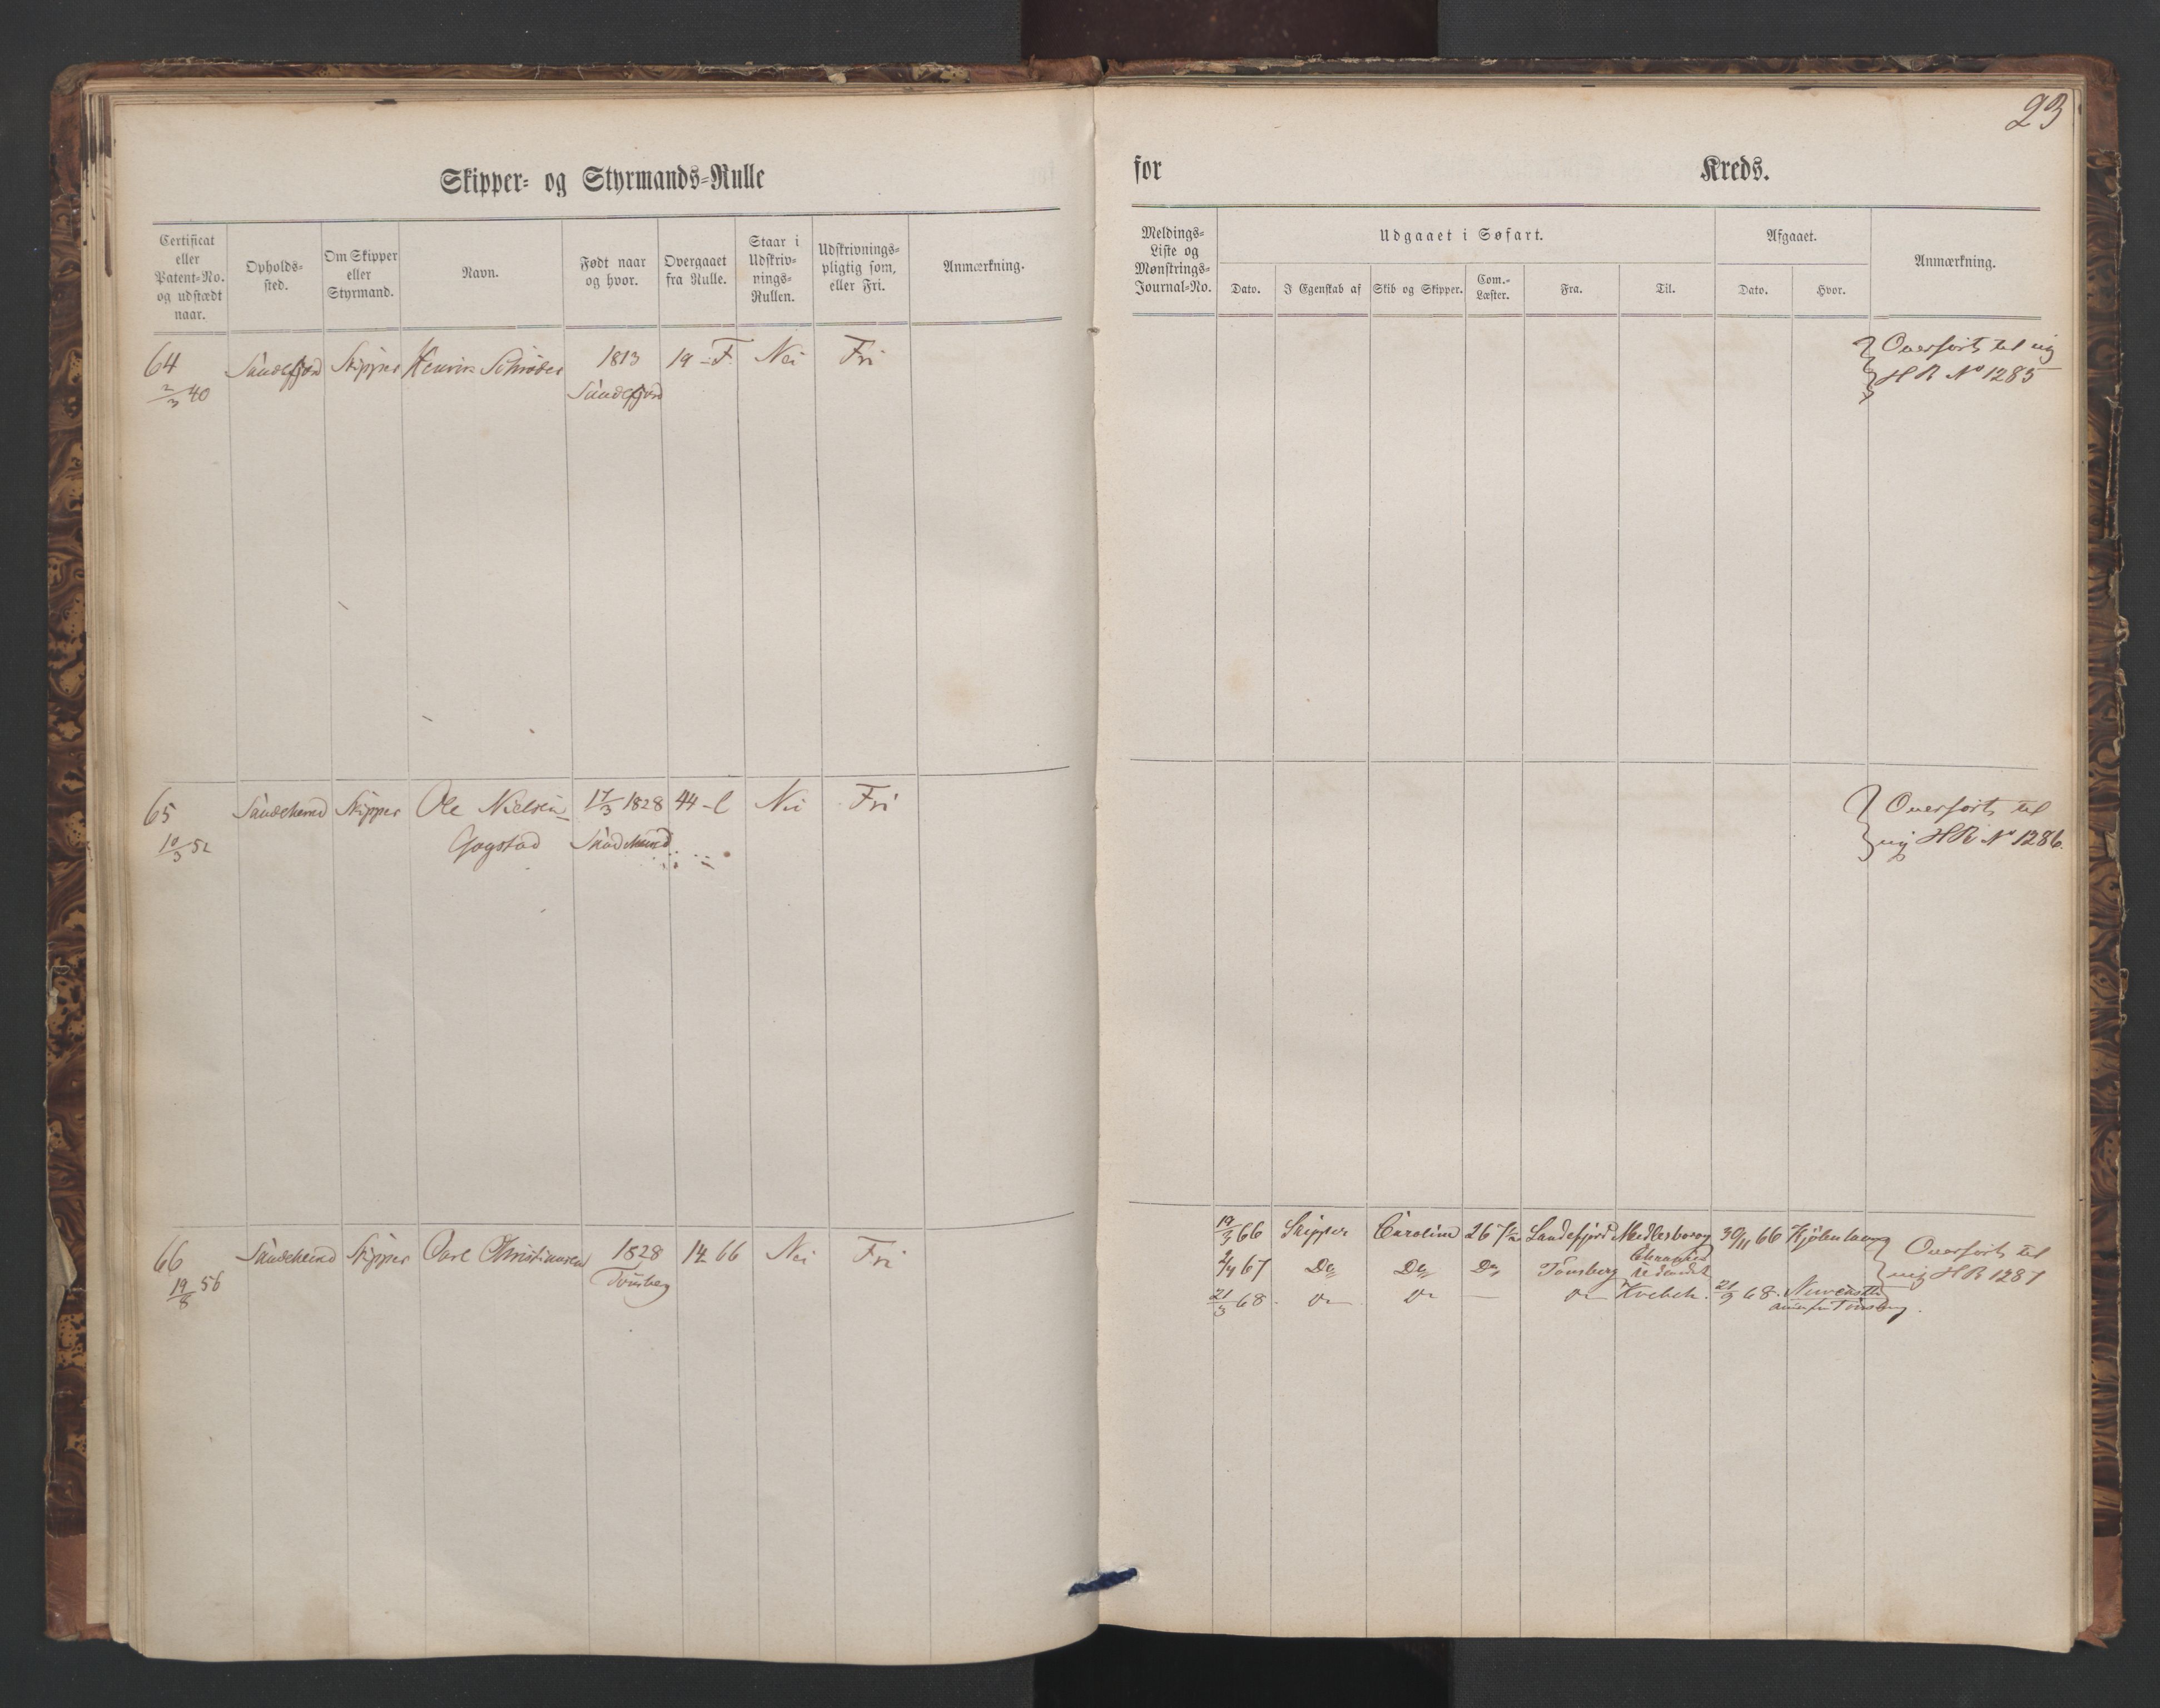 23
Skipper- og Styrmands-Rulle for Kreds.
Certificat eller Patent-No. og udstædt naar.
Opholds-sted.
Om Skipper eller Styrmand.
Navn.
Født naar og hvor.
Overgaaet fra Rulle.
Staar i Udskriv-nings-Rullen.
Udskrivnings-pligtig som, eller Fri.
Anmærkning.
Meldings-Liste og Mønstrings-Journal-No.
Udgaaet i Søfart.
Dato.
I Egenskab af
Skib og Skipper.
Com.-Læster.
Fra.
Til.
Afgaaet.
Dato.
Hvor.
Anmærkning.
64 Sandefjord Skipper Henrik Schrøder 1813 19 - F. Nei Fri
2/3 40 Sandefjord
Overført til ny
HR No 1285
65 Sandeherred Skipper Ole Nielsen 17/3 1828 44 - l Nei Fri
10/3 52 Gogstad Sandeherred
Overført til
ny HR No 1286.
66 Sandeherred Skipper Carl Christiansen 1828 14 66 Nei Fri
19/8 56 Tønsberg
19/3 66 Skipper Carolina 267 Sandefjord Medlesborog 30/11 66 Kjøbenhavn
67 Do Do Do Tønsberg
21/3 68. Do Do — Do Kvebek. 21/9 68.
Tønsberg.
Overført til
ny HR 1287